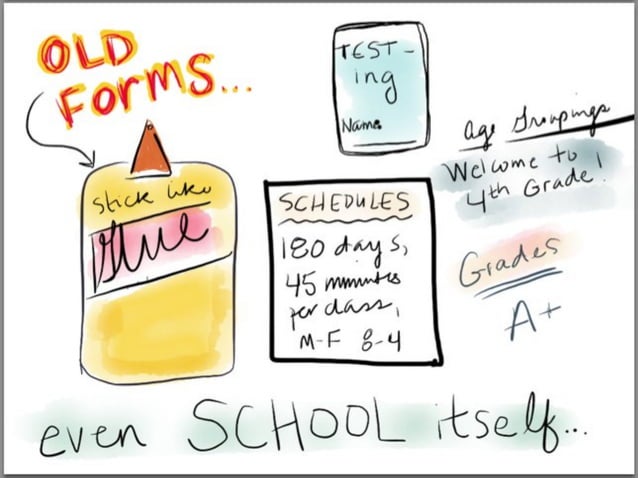 OLD
FORMS...
stick like
Glue
TEST-
ing
Name
SCHEDULES
180 days,
45 minutes
per class,
M-F 8-4
age Groupings
Welcome to
4th Grade!
Grades
A+
even SCHOOL itself...